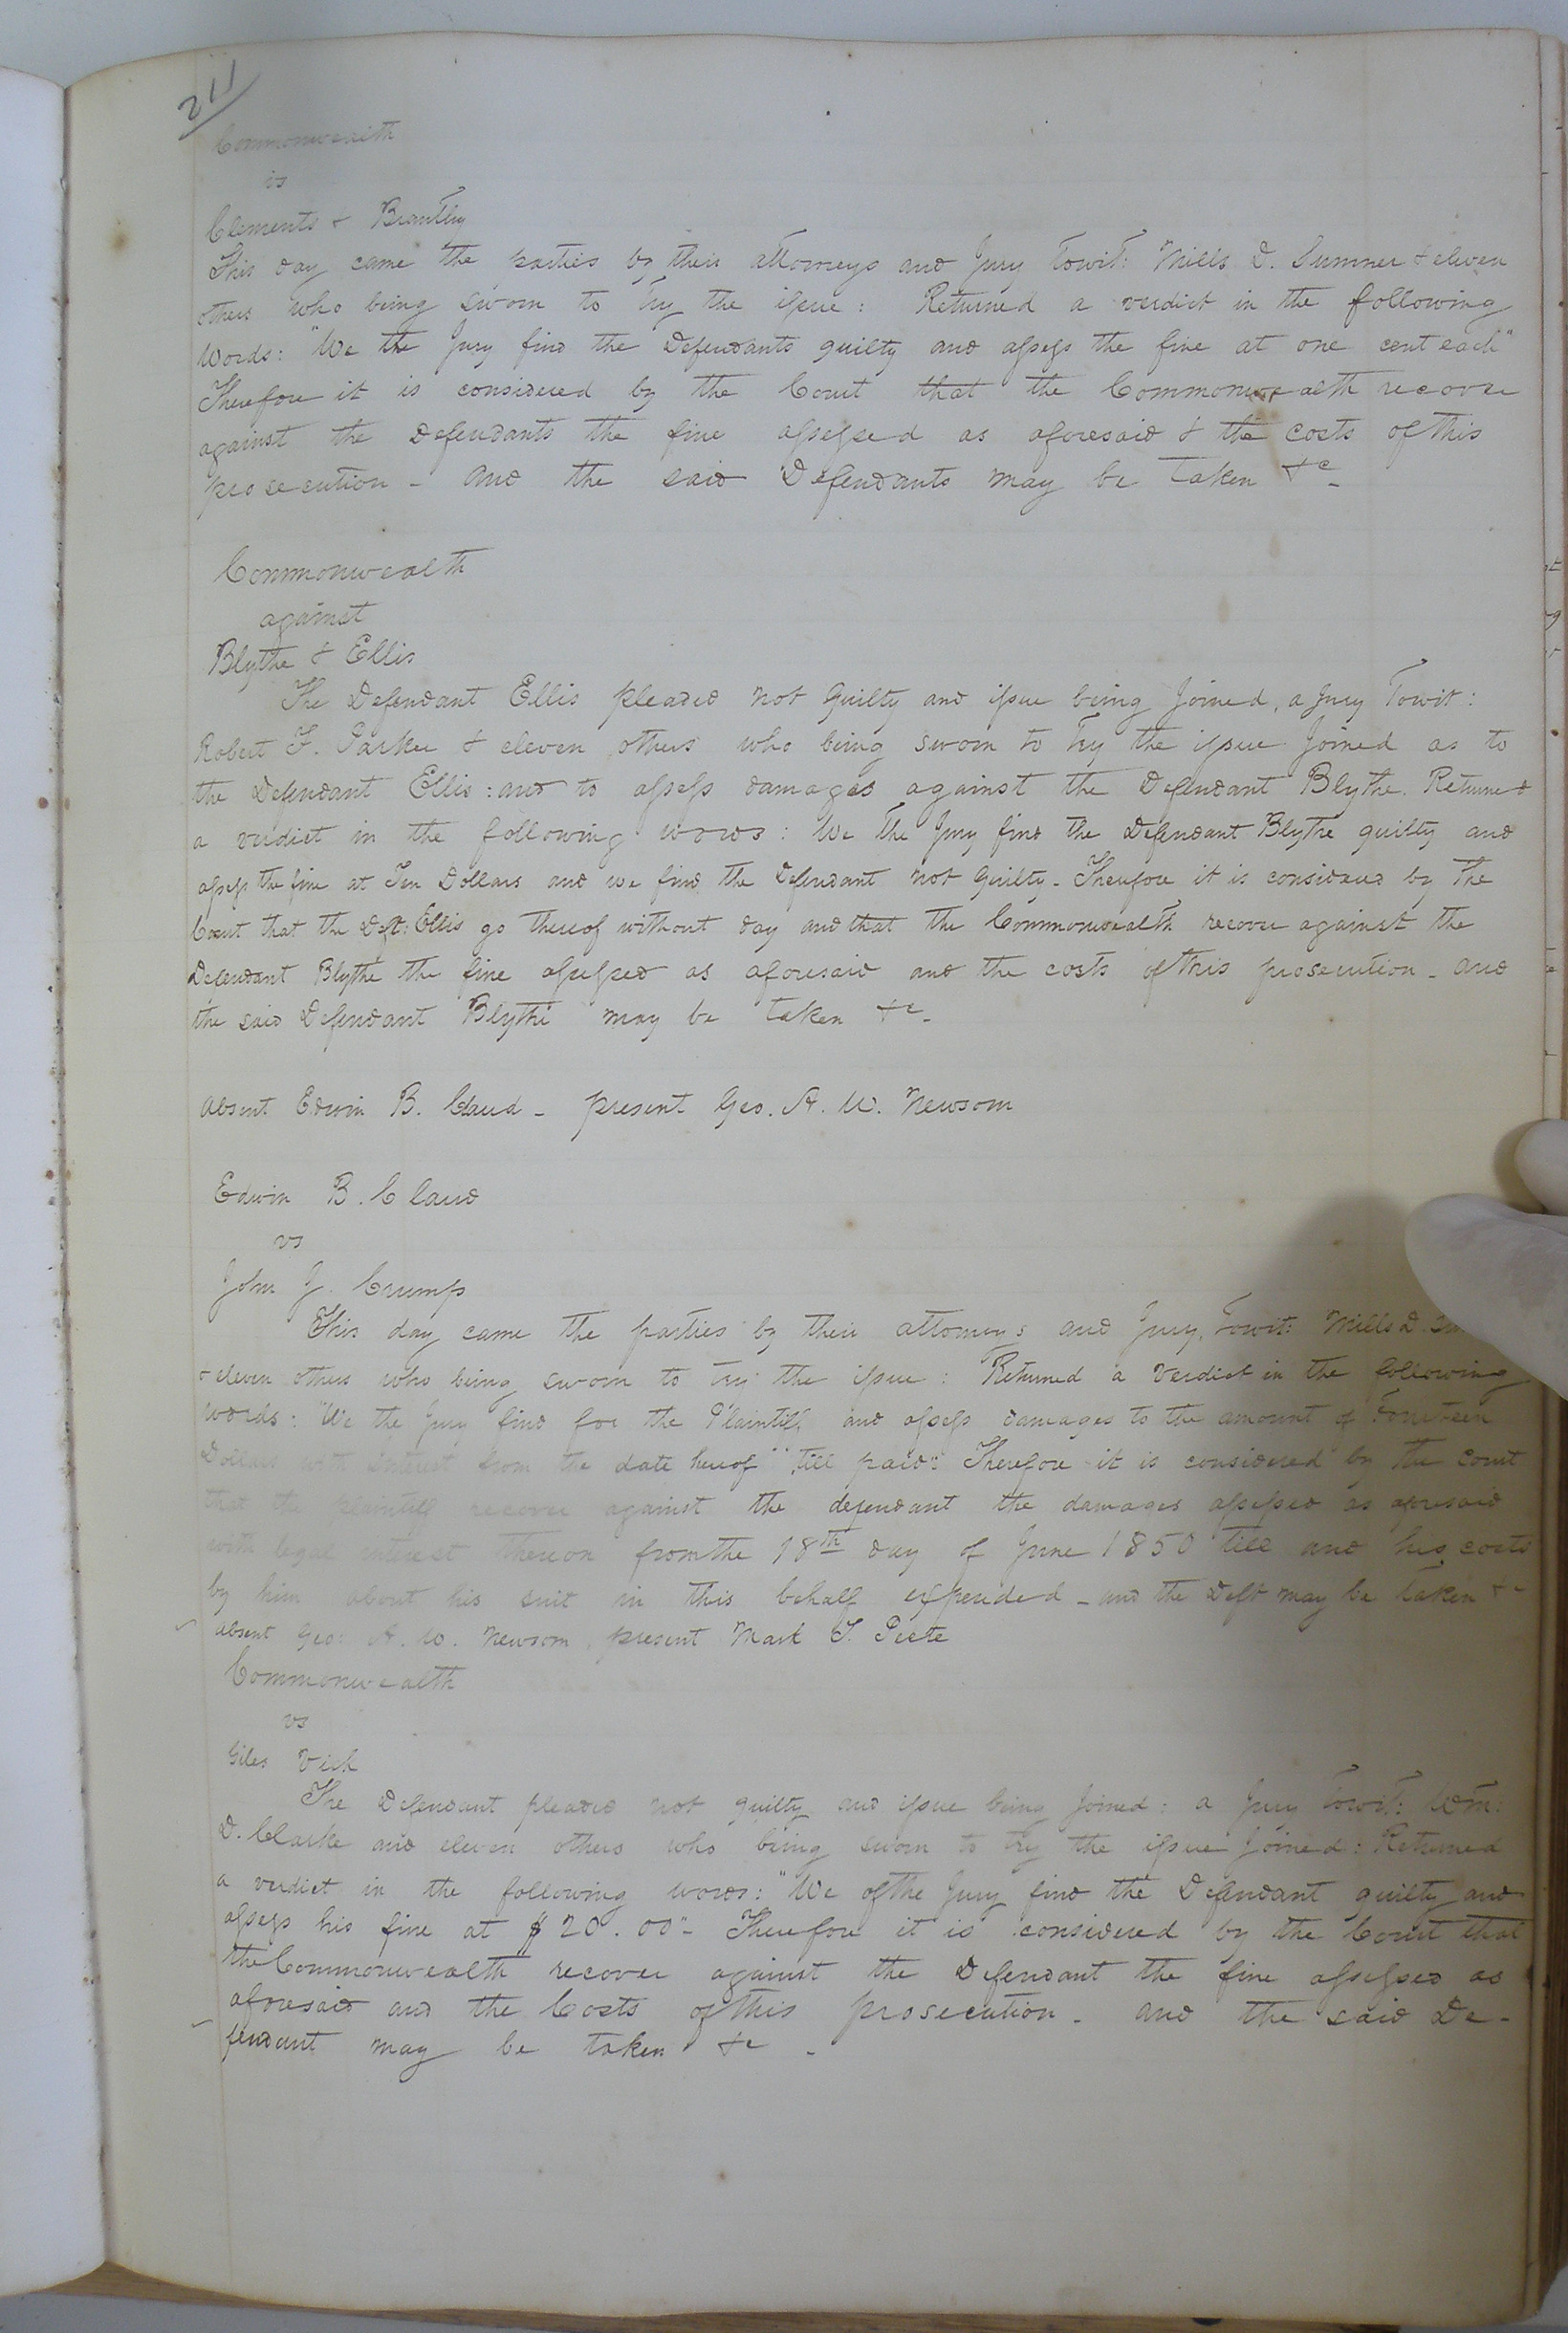 211
Commonwealth
vs
Clements & Brantley
This day came the parties by their attorneys and Jury towit: Mills D. Sumner & eleven
others who being sworn to try the issue: Returned a verdict in the following
words: "We the Jury find the Defendants guilty and assess the fine at one cent each"
Therefore it is considered by the Court that the Commonwealth recover
against the Defendants the fine assessed as aforesaid & the costs of this
prosecution - and the said Defendants may be taken &c -
Commonwealth
against
Blythe & Ellis
The Defendant Ellis pleaded not Guilty and issue being Joined, a Jury Towit:
Robert F. Parker & eleven others who being sworn to try the issue Joined as to
the Defendant Ellis: and to assess damages against the Defendant Blythe. Returned
a verdict in the following words: We the Jury find the Defendant Blythe guilty and
assess the fine at Ten Dollars and we find the Defendant not Guilty - Therefore it is considered by the
Court that the Deft: Ellis go thereof without day and that the Commonwealth recover against the
Defendant Blythe the fine assessed as aforesaid and the costs of this prosecution - and
the said Defendant Blythe may be taken &c -
Absent Edwin B. Claud - present Geo. A. W. Newsom
Edwin B. Claud
vs
John J. Crump
This day came the parties by their attorneys and Jury, Towit: Mills D.
& eleven others who being sworn to try the issue: Returned a verdict in the following
words: "We the Jury find for the Plaintiff and assess damages to the amount of Fourteen
Dollars with interest from the date hereof" "till paid": Therefore it is considered by the Court
that the plaintiff recover against the defendant the damages assessed as aforesaid
with legal interest thereon from the 18th day of June 1850 till and his costs
by him about his suit in this behalf expended - and the Deft may be taken &c
absent Geo: A. W. Newsom present Mark S. Peete
Commonwealth
vs
Giles Vick
The Defendant pleaded not guilty and issue being Joined: a Jury towit: Wm:
D. Clarke and eleven others who being sworn to try the issue Joined: Returned
a verdict in the following words: "We of the Jury find the Defendant guilty and
assess his fine at $20.00" - Therefore it is considered by the Court that
the Commonwealth recover against the Defendant the fine assessed as
aforesaid and the Costs of this prosecution - and the said De-
fendant may be taken &c -